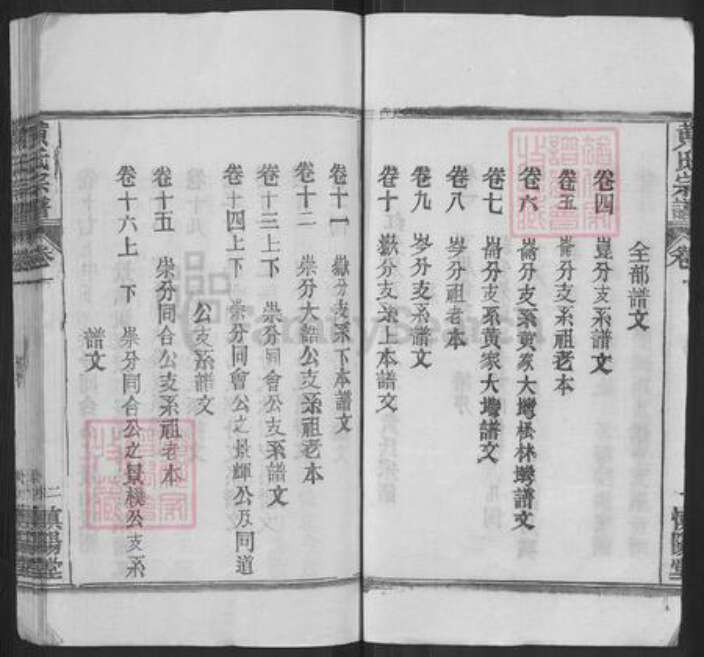 黃氏宗譜
卷一
一
慎陽堂
全部譜文
卷四 崑分支系譜文
卷五 崙分支系祖老本
卷六 崙分支系黃家大塆松林塆譜文
卷七 崙分支系黃家大塆譜文
卷八 岑分祖老本
卷九 岑分支系譜文
卷十 嶽分支系上本譜文
卷十一 嶽分支系下本譜文
卷十二 崇分大誥公支系祖老本
卷十三上下 崇分同會公支系譜文
卷十四上下 崇分同會公之景輝公及同道
公支系譜文
卷十五 崇分同合公支系祖老本
卷十六上 下 崇分同合公之景棧公支系
譜文
黃氏宗譜
卷
二
慎陽堂
FamilySearch